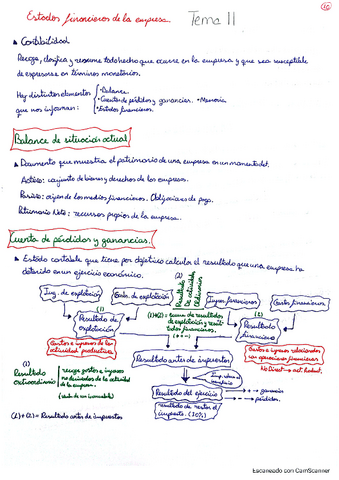 Estados financieros de la empresa. Tema 11
Contabilidad
Recoge, clasifica y resume todo hecho que ocurre en la empresa y que sea susceptible
de expresarse en términos monetarios.
Hay distintos elementos
que nos informan:
• Balance.
• Cuenta de pérdidas y ganancias. • Memoria.
• Estados financieros.
Balance de situación actual
Documento que muestra el patrimonio de una empresa en un momento det.
Activo: conjunto de bienes y derechos de la empresa.
Pasivo: origen de los medios financieros. Obligaciones de pago.
Patrimonio Neto: recursos propios de la empresa.
Cuenta de pérdidas y ganancias.
Estado contable que tiene por objetivo calcular el resultado que una empresa ha
obtenido en un ejercicio económico.
Ing. de explotación
Gastos de explotación
(2)
Resultado
Ingresos financieros
Gastos financieros
(1)
Resultado de
explotación
(1)+(2) = suma de resultados
de explotación y result
tados financieros.
(+ o -)
(2)
Resultado
financiero
Gastos e ingresos de la
actividad productiva.
Gastos e ingresos relacionados
con operaciones financieras
No Direct → act. Product.
Resultado antes de impuestos
(1)
Resultado
extraordinario
recoge gastos e ingresos
no derivados de la actividad
de la empresa.
(venta de un inmueble)
Resultado del ejercicio
+ → ganancias
- → pérdidas.
resultado de restar el
impuesto. (30%)
(1)+(2) = Resultado antes de impuestos
Escaneado con CamScanner